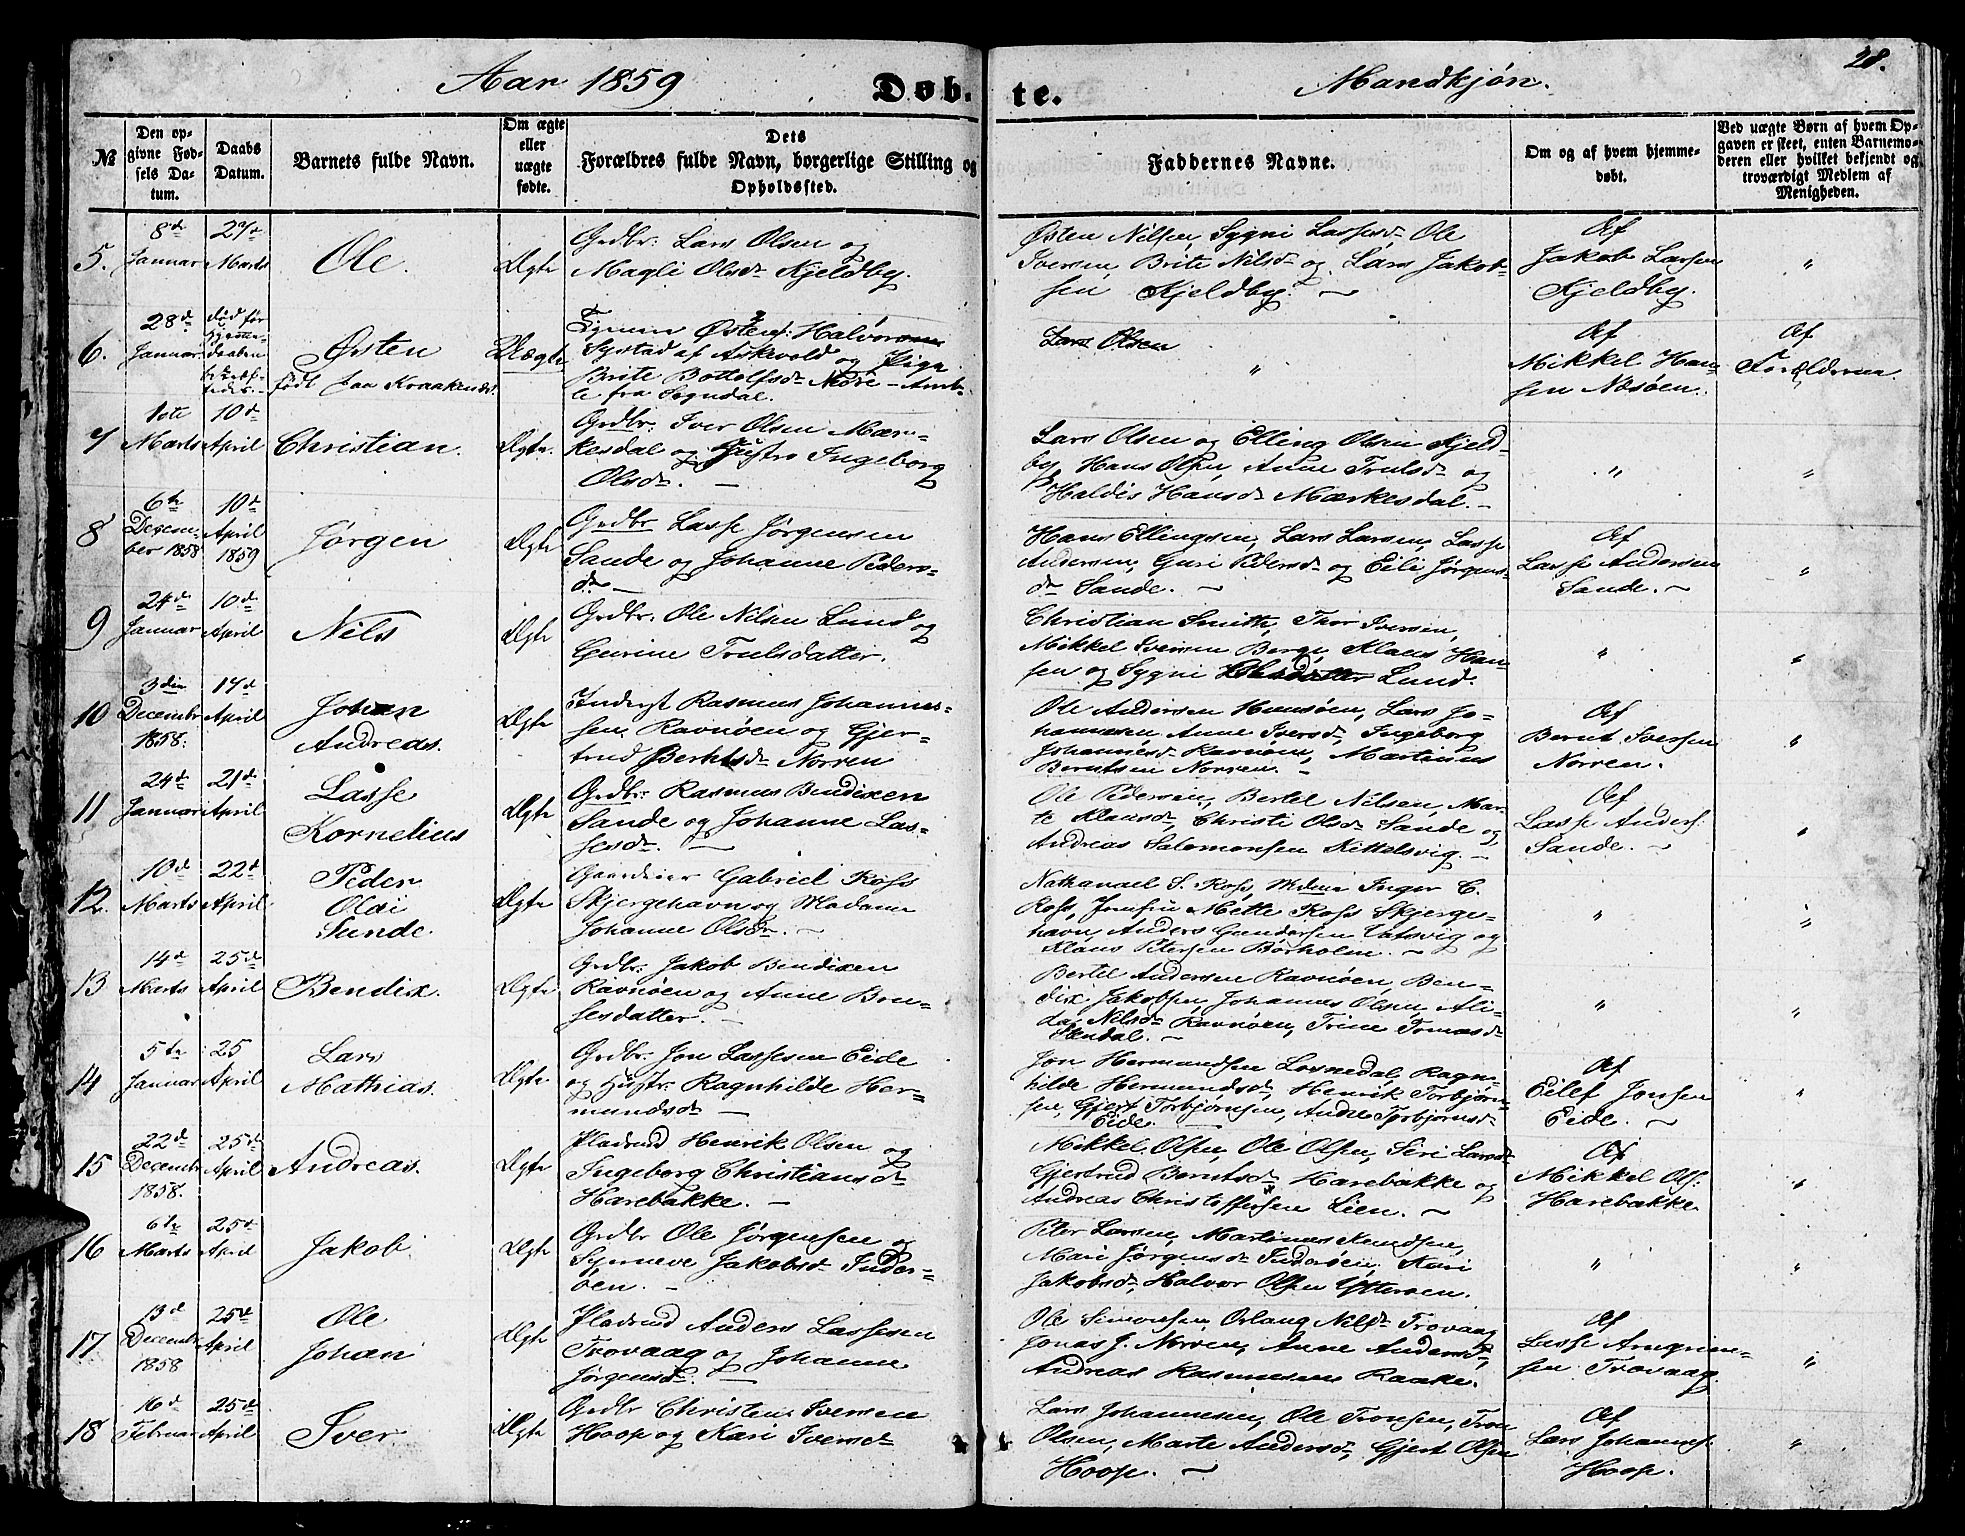 Aar 1859
Døb-
te.
Mandkjøn.
28.
№
Den op-
givne Fød-
sels Da-
tum.
Daabs
Datum.
Barnets fulde Navn.
Om ægte
eller
uægte
fødte.
Dets
Forældres fulde Navn, borgerlige Stilling og
Opholdssted.
Faddernes Navne.
Om og af hvem hjemme-
døbt.
Ved uægte Børn af hvem Op-
gaven er skeet, enten Barnemo-
deren eller hvilket bekjendt og
troværdigt Medlem af
Menigheden.
5.
8de
Januar
27de
Marts
Ole.
Ægte
Grdbr. Lars Olsen og
Magli Olsdr Kjeldby.
Østen Nilsen, Sygni Lassesdr Ole
Iversen, Brite Nilsdr og Lars Jakob-
sen Kjeldby. ~
Af
Jakob Larsen
Kjeldby.
"
6.
28de
Januar
død før
daaben
Østen
født paa Kraakenes.
Uægte
Østens: Halvorsen
Systad af Askvold og Pige
Brite Bottolfsdr Nedre-Amb-
le fra Sogndal.
Lars Olsen
"
Af
Mikkel Han-
sen Næsøen.
Af
Forældrene.
7
1ste
Marts
10de
April
Christian.
Ægte.
Grdbr. Iver Olsen Mær-
kesdal og Hustro Ingeborg
Olsdr. —
Lars Olsen og Elling Olsen Kjeld-
by, Hans Olsen, Anne Trulsdr og
Haldis Hansdr Mærkesdal. -
"
"
8
6te
Decem-
ber 1858
10de
April
1859
Jørgen
Ægte
Grdbr. Lasse Jørgensen
Sande og Johanne Peders-
dr —
Hans Ellingsen, Lars Larsen, Lasse
Andersen, Guri Pedersdr og Eili Jørgens-
dr Sande. ~
Af
Lasse Andersen
Sande. ~
"
9
24de
Januar
10de
April
Nils
Ægte
Grdbr. Ole Nilsen Lund og
Gurine Trulsdatter.
Christian Smith, Thor Iversen,
Mikkel Iversen Berge, Klaus Han-
sen og Sygni Olesdatter Lund.
"
"
10
3die
Decembr
1858.
17de
April
Johan
Andreas.
Ægte
Inderst Rasmus Johannes-
sen Ravnøen og Gjer-
trud Berntsdr Norven
Ole Andersen Hunsøen, Lars Jo-
hannesen, Anne Iversdr, Ingeborg
Johannesdr Ravnøen, Martinus
Berntsen Norven. -
Af
Bernt Iversen
Norven.
"
11
24de
Januar
21de
April
Lasse
Kornelius
Ægte
Grdbr. Rasmus Bendixen
Sande og Johanne Las-
sesdr. —
Ole Pedersen, Bertel Nilsen, Mar-
te Klausdr, Christi Olsdr Sande og
Andreas Salomonsen Kittelsvig. -
Af
Lasse Anders:
Sande. ~
"
12.
10de
Marts
22de
April
Peder
Olai
Sunde.
Ægte
Gaardeier Gabriel Koss
Skjergehavn og Madame
Johanne Olsdr. ~
Nathanael S. Koss, Mdme Inger C.
Koss, Jomfru Mette Koss Skjerge-
havn, Anders Gundersen Vatsvig og
Klaus Petersen Borholm. ~
"
"
13
14de
Marts
25de
April
Bendix.
Ægte
Grdbr. Jakob Bendixen
Ravnøen og Anne Bon-
sesdatter. —
Bertel Andersen Ravnøen, Ben-
dix Jakobsen, Johannes Olsen, Ali-
da Nilsdr Ravnøen, Trine Tomasdr
~
"
"
14
5te
Januar
25
April
Lars
Mathias.
Ægte
Grdbr. Jon Lassesen Eide
og Hustr. Ragnhilde Her-
mundsdr —
Jon Hermundsen Losnedal, Ragn-
hilde Hermundsdr, Henrik Torbjørn-
sen, Gjert Torbjørnsen, Andre Torbjørnsdr
Eide —
Af
Eilef Jonsen
Eide. ~
"
15
22de
Decembr
1858.
25de
April
Andreas.
Ægte
Pladsmd Henrik Olsen og
Ingeborg Christiansdr
Harebakke. —
Mikkel Olsen, Ole Olsen, Siri Larsdr
Gjertrud Berntsdr Harebakke og
Andreas Christoffersen Lien. ~
Af
Mikkel Ols:
Harebakke
"
16
6te
Marts
25de
April
Jakob.
Ægte
Grdbr Ole Jørgensen og
Synneve Jakobsdr Inder-
øen. -
Peter Larsen, Martinus Knudsen,
Mari Jørgensdr Inderøen, Kari
Jakobsdr, Halvor Olsen Ytterøen.
"
"
17
13de
Decembr
1858
25de
April
Ole
Johan
Ægte
Pladsmd Anders Lassesen
Trovaag og Johanne
Jørgensdr. —
Ole Simonsen, Oslaug Nilsdr Trovaag
Jonas J. Norven, Anne Andersdr,
Andreas Rasmussen Raake.
Af
Lasse Arngrim-
sen Trovaag
"
18
16de
Februar
25de
April
Iver.
Ægte
Grdbr Christen Iversen
Hoop og Kari Iversdr
Lars Johannesen, Ole Tronsen, Tron
Olsen, Marte Andersdr, Gjert Olsen
Hoop. ~
Af
Lars Johannes:
Hoop.
"